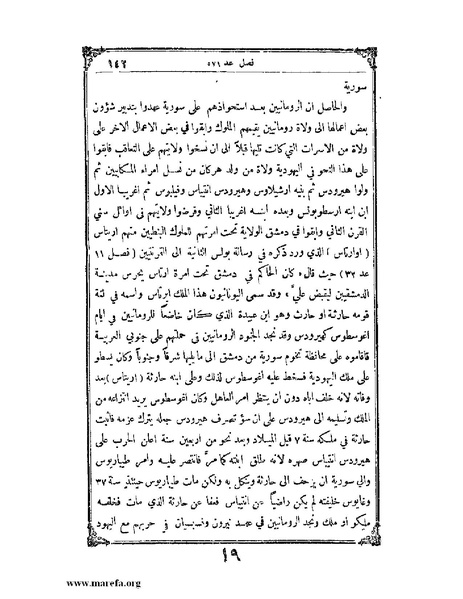 فصل عد ٥٧١ ١٤٢
سورية
والحاصل ان الرومانيين بعد استحواذهم على سورية عهدوا بتدبير شؤون
بعض اعمالها الى ولاة رومانيين يقيمهم الملوك وابقوا في بعض الاعمال الاخر على
ولاة من الاسرات التي كانت تليها قبلاً الى ان نسخوا ولايتهم على التعاقب فابقوا
على هذا النحو في اليهودية ولاة من ولد هركان من نسل امراء المكابيين ثم
ولوا هيرودس ثم بنيه ارشيلاوس وهيرودس انتيباس وفيلبوس ثم اغريبا الاول
ابن ابنه ارسطوبولس وبعده ابنه اغريبا الثاني وقرضوا ولايتهم في اوائل سني
القرن الثاني وابقوا في دمشق الولاية تحت امرتهم للملوك النبطيين منهم اريتاس
( اوارتاس ) الذي ورد ذكره في رسالة بولس الثانية الى القرنتيين ( فصل ١١
عد ٣٢) حيث قال، كان الحاكم في دمشق تحت امرة ارتاس يحرس مدينة
الدمشقيين ليقبض عليَّ ، وقد سمى اليونانيون هذا الملك ارتاس واسمه في لغة
قومه حارثة او حارث وهو ابن عبيدة الذي كان خاضعاً للرومانيين في ايام
اغوسطوس كهيرودس وقد نجد الجنود الرومانيين في حملتهم على جنوبي العربية
فاقاموه على محافظة تخوم سورية من دمشق الى ما يليها شرقاً وجنوباً وكان يسطو
على ملك اليهودية فسخط عليه اغوسطوس لذلك وعلى ابنه حارثة ( اريتاس )بعد
وفاته لانه خلف اباه دون ان ينتظر امر العاهل وكان اغوسطوس يريد انتزاعه من
الملك وتسليمه الى هيرودس على ان سؤ تصرف هيرودس جعله يترك عزمه فاثبت
حارثة في ملكه سنة ٧ قبل الميلاد وبعد نحو من اربعين سنة اعلن الحرب على
هيرودس انتيباس صهره لانه طلق ابنته كما مرَّ فانتصر عليه وامر طيباريوس
والي سورية ان يزحف الى حارثة وينكل به ولكن مات طيباريوس حينئذٍ سنة ٣٧
وغايوس خليفته لم يكن راضياً عن انتيباس فعفا عن حارثة الذي مات فخلفه
مليكو او ملك ونجد الرومانيين في عهد نيرون وفسبسيان في حربهم مع اليهود
١٩
www.marefa.org